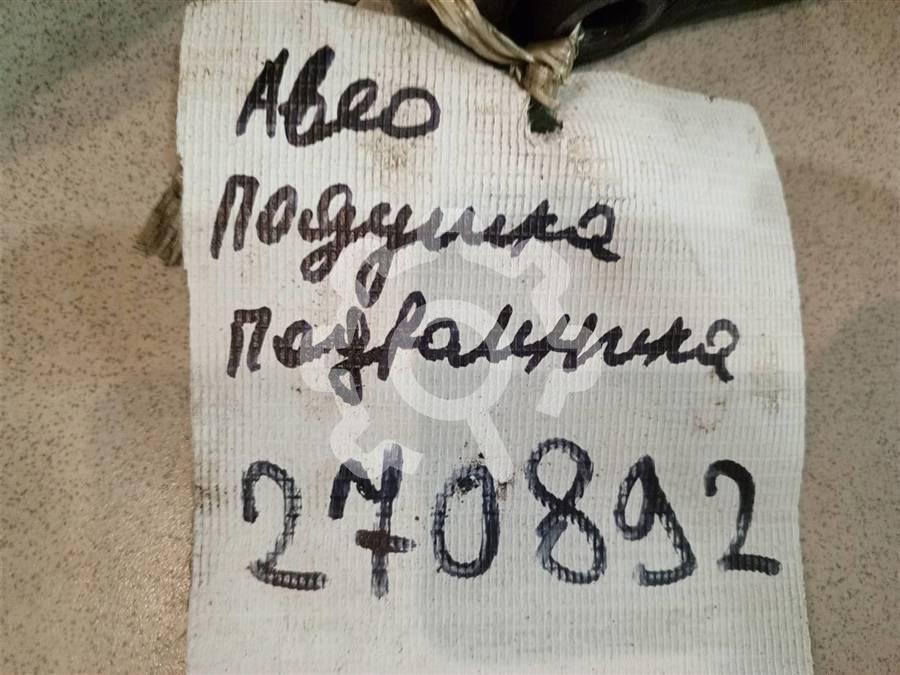 Авео
Подушка
Подрамника
270892